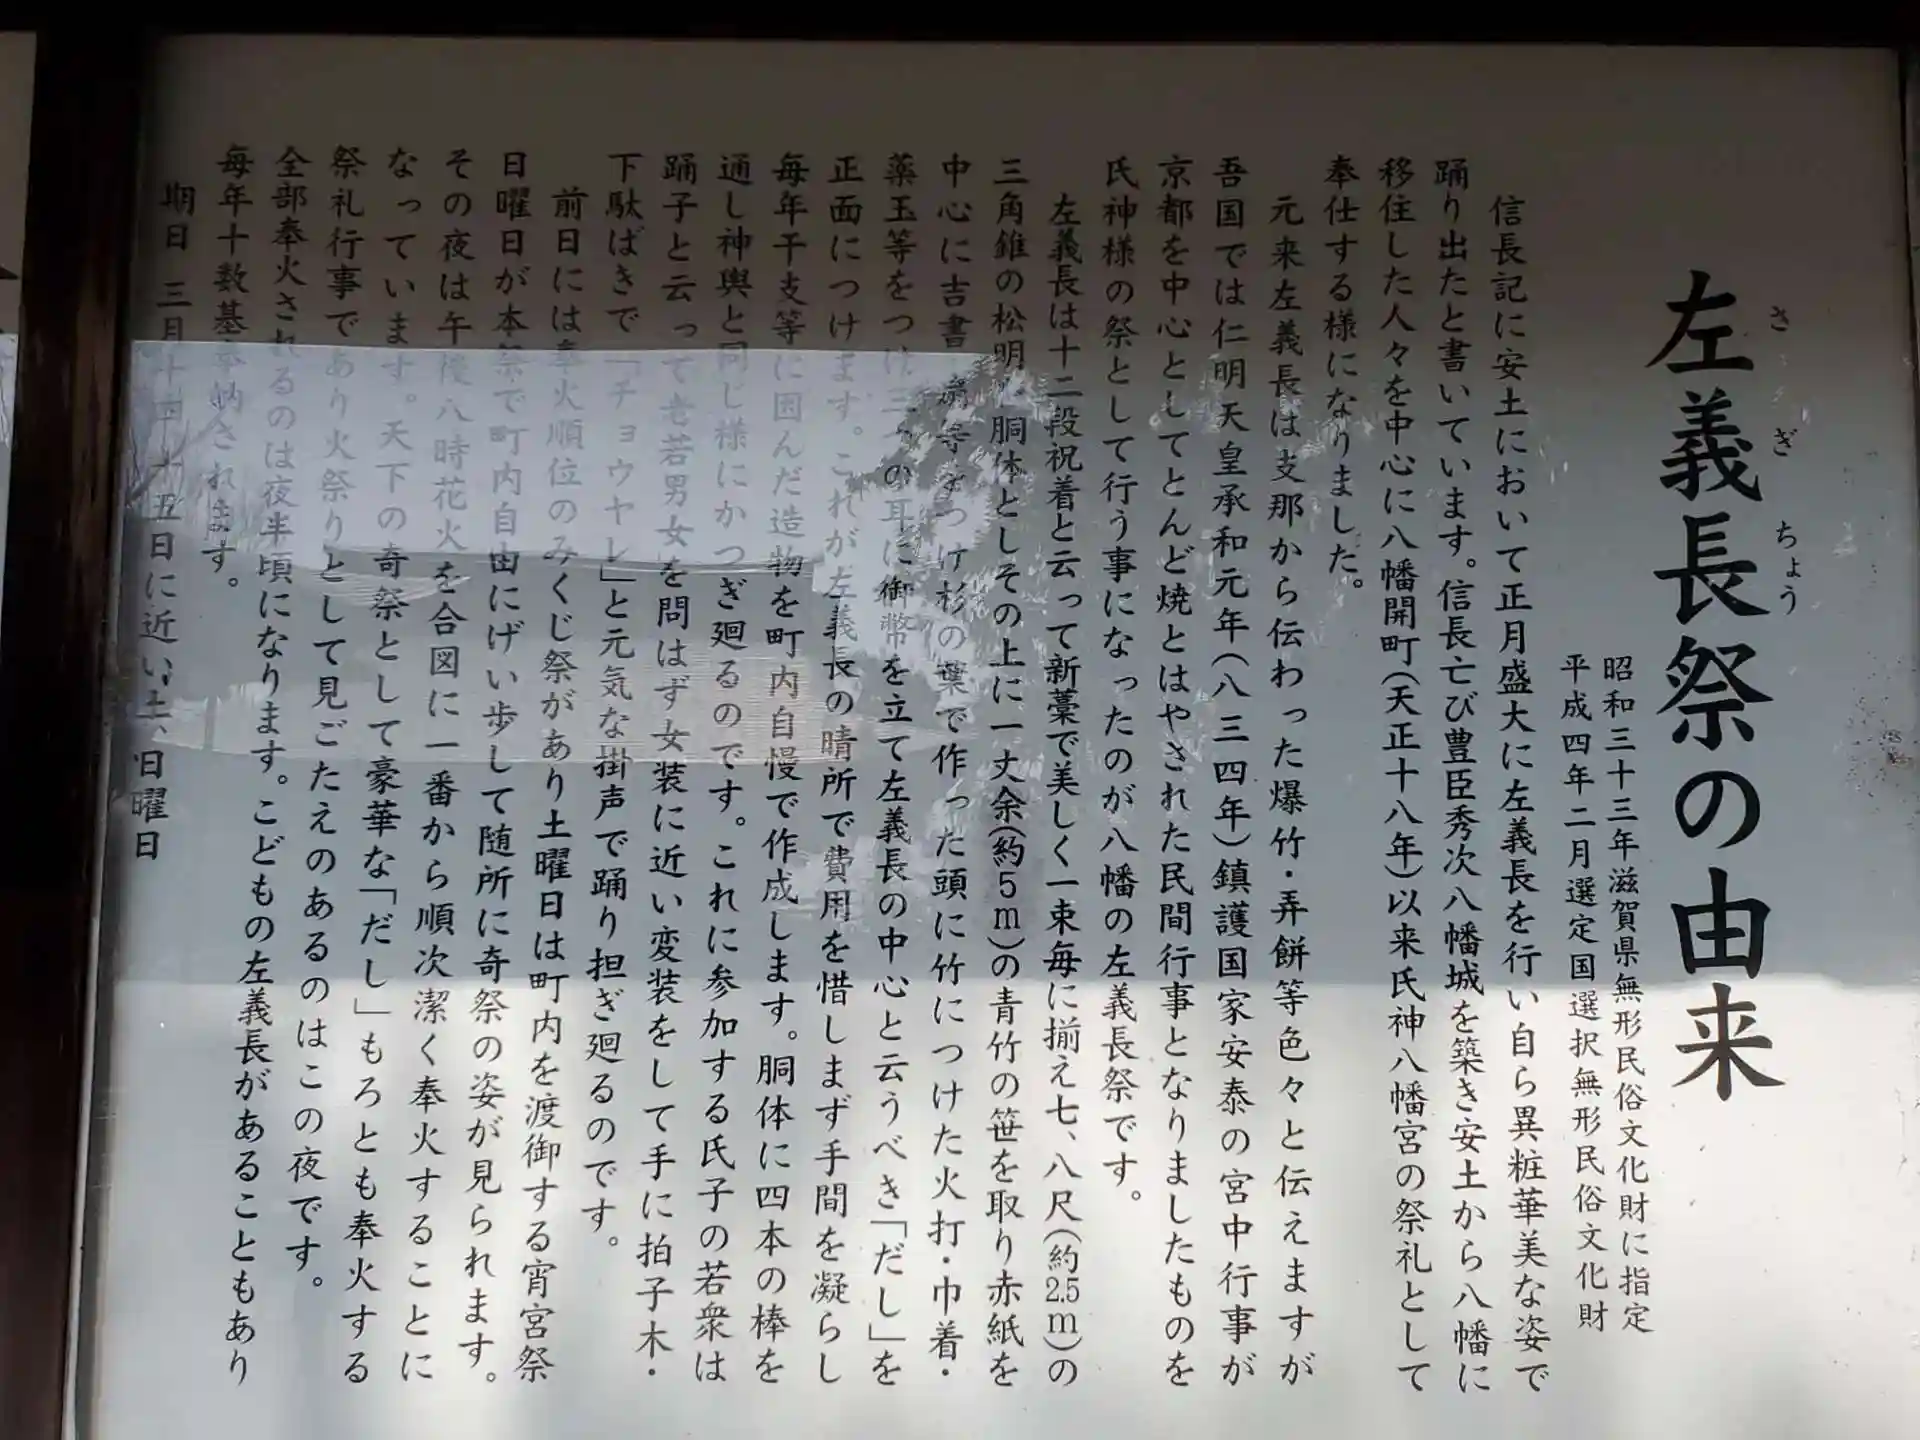 左義長祭の由来
さぎちょう
昭和三十三年滋賀県無形民俗文化財に指定
平成四年二月選定国選択無形民俗文化財
信長記に安土において正月盛大に左義長を行い自ら異粧華美な姿で
踊り出たと書いています。信長亡び豊臣秀次八幡城を築き安土から八幡に
移住した人々を中心に八幡開町(天正十八年)以来氏神八幡宮の祭礼として
奉仕する様になりました。
元来左義長は支那から伝わった爆竹・弄餅等色々と伝えますが
吾国では仁明天皇承和元年(八三四年)鎮護国家安泰の宮中行事が
京都を中心としてとんど焼とはやされた民間行事となりましたものを
氏神様の祭として行う事になったのが八幡の左義長祭です。
左義長は十二段祝着と云って新藁で美しく一束毎に揃え七、八尺(約2.5m)の
三角錐の松明 胴体としその上に一丈余(約5m)の青竹の笹を取り赤紙を
中心に吉書 扇等をつけ杉の葉で作った頭に竹につけた火打・巾着・
薬玉等をつけ の耳に御幣を立て左義長の中心と云うべき「だし」を
正面につけます。これが左義長の晴所で費用を惜しまず手間を凝らし
毎年干支等に因んだ造物を町内自慢で作成します。胴体に四本の棒を
通し神輿と同じ様にかつぎ廻るのです。これに参加する氏子の若衆は
踊子と云って老若男女を問はず女装に近い変装をして手に拍子木・
下駄ばきで「チョウヤレ」と元気な掛声で踊り担ぎ廻るのです。
前日には奉火順位のみくじ祭があり土曜日は町内を渡御する宵宮祭
日曜日が本祭で町内自由にげい歩して随所に奇祭の姿が見られます。
その夜は午後八時花火を合図に一番から順次潔く奉火することに
なっています。天下の奇祭として豪華な「だし」もろとも奉火する
祭礼行事であり火祭りとして見ごたえのあるのはこの夜です。
全部奉火されるのは夜半頃になります。こどもの左義長があることもあり
毎年十数基奉納されます。
期日 三月十四、十五日に近い土、日曜日